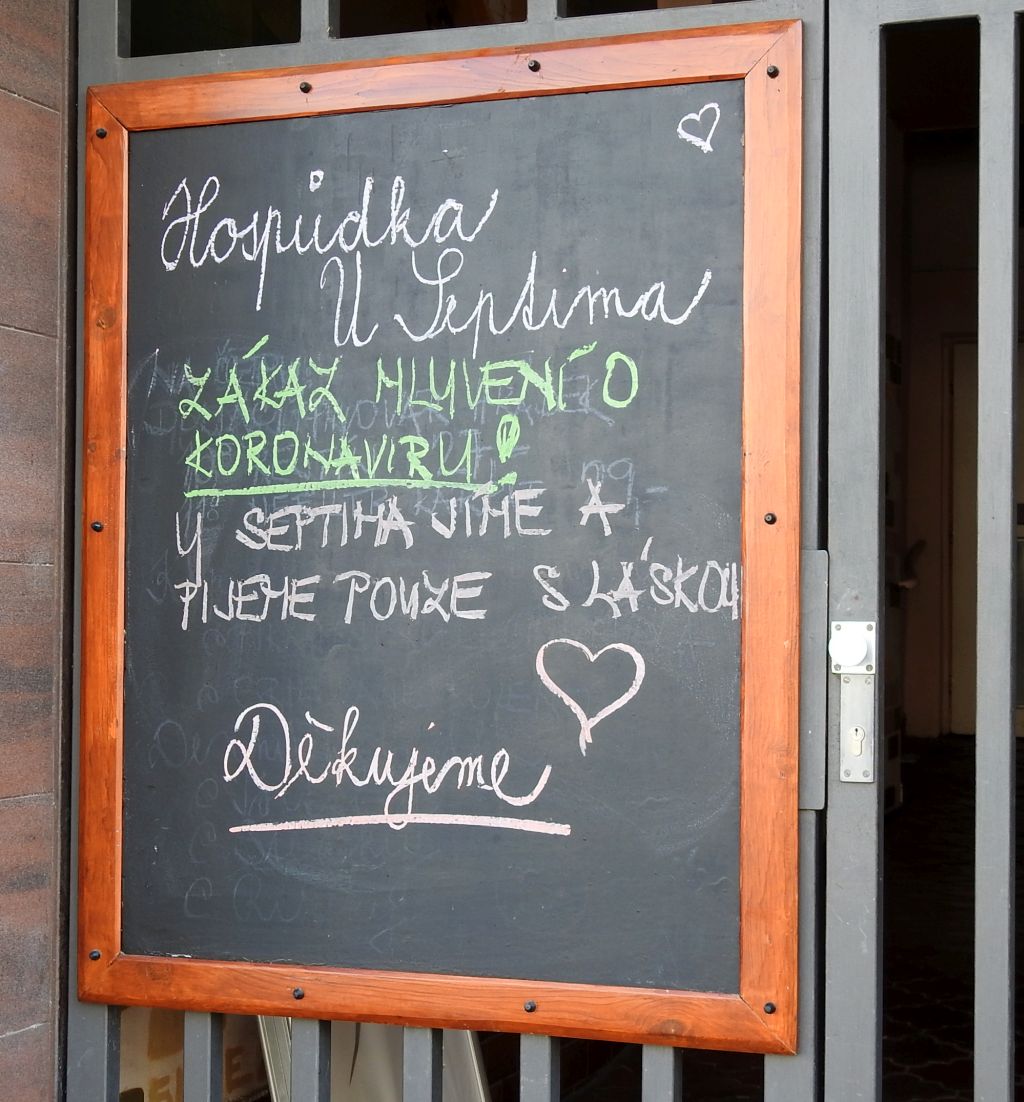 Hospůdka
U Septima
ZÁKAZ MLUVENÍ O
KORONAVIRU!
U SEPTIMA JÍME A
PIJEME POUZE S LÁSKOU
Děkujeme